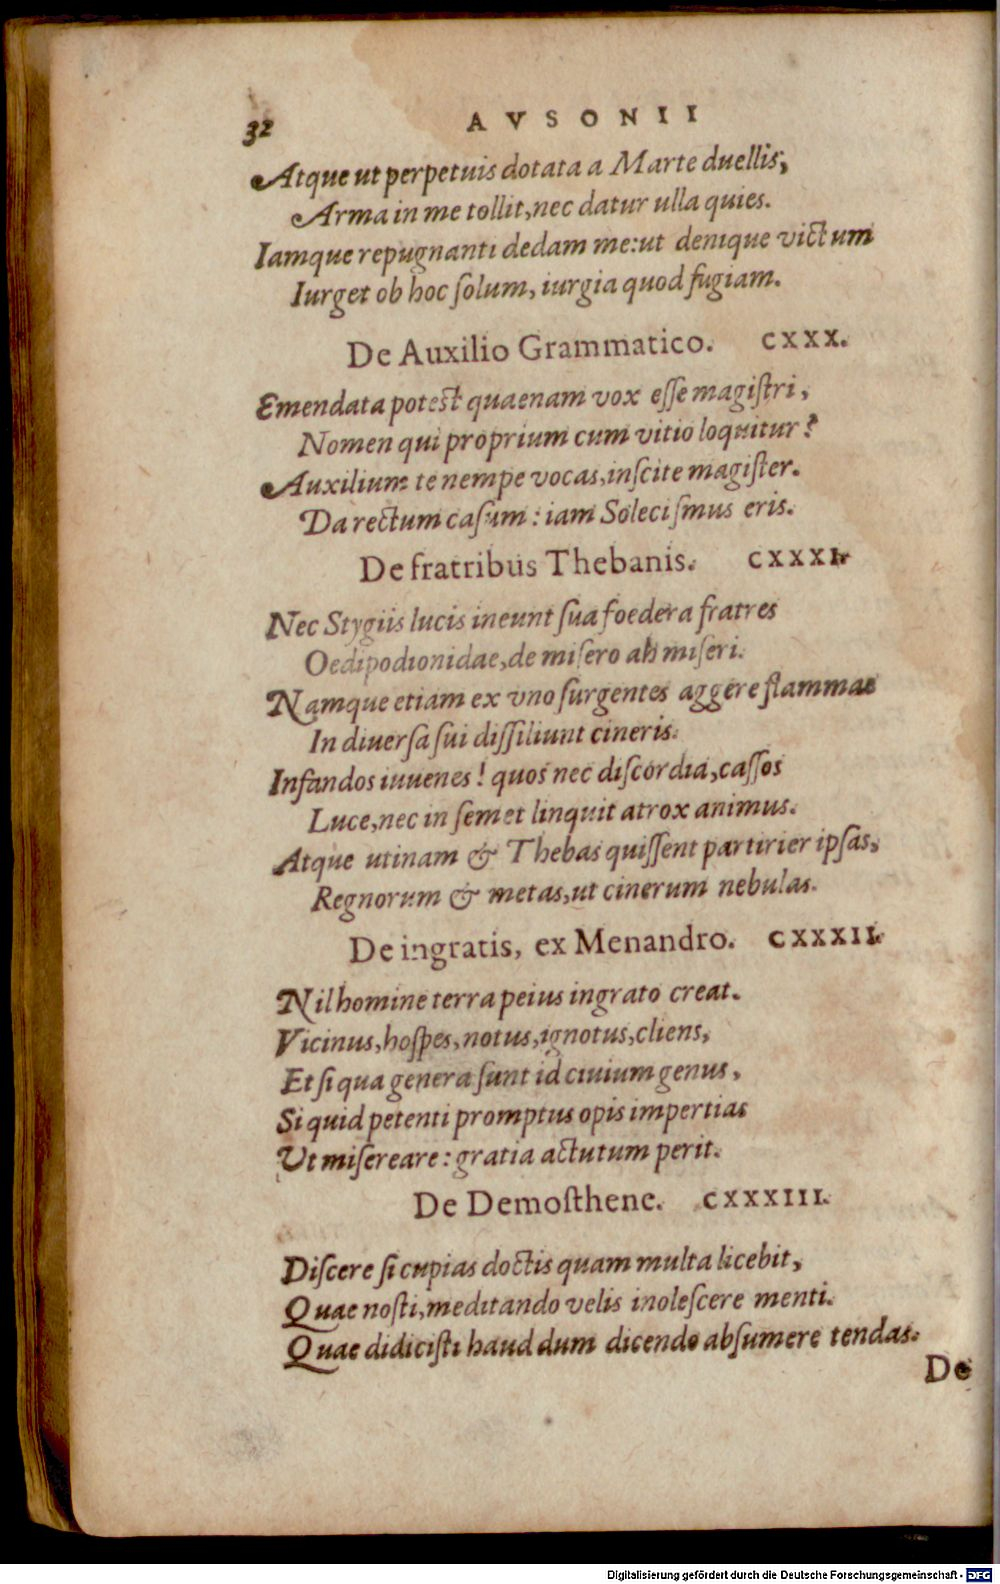 32 AVSONII
Atque ut perpetuis dotata a Marte duellis,
Arma in me tollit, nec datur ulla quies.
Iamque repugnanti dedam me: ut denique victum
Iurget ob hoc ſolum, iurgia quod fugiam.
De Auxilio Grammatico. CXXX.
Emendata poteſt quaenam vox eſſe magiſtri,
Nomen qui proprium cum vitio loquitur?
Auxilium te nempe vocas, inſcite magiſter.
Da rectum caſum: iam Soleciſmus eris.
De fratribus Thebanis. CXXXI.
Nec Stygiis lucis ineunt ſua foedera fratres
Oedipodionidae, de miſero ah miſeri.
Namque etiam ex vno ſurgentes aggere flammae
In diuerſa ſui diſſiliunt cineris.
Infandos iuuenes! quos nec diſcordia, caſſos
Luce, nec in ſemet linquit atrox animus.
Atque utinam & Thebas quiſſent partirier ipſas,
Regnorum & metas, ut cinerum nebulas.
De ingratis, ex Menandro. CXXXII.
Nil homine terra peius ingrato creat.
Vicinus, hoſpes, notus, ignotus, cliens,
Et ſi qua genera ſunt id ciuium genus,
Si quid petenti promptus opis impertias
Ut miſereare: gratia actutum perit.
De Demoſthene. CXXXIII.
Diſcere ſi cupias doctis quam multa licebit,
Quae noſti, meditando velis inoleſcere menti.
Quae didiciſti haud dum dicendo abſumere tendas.
De
Digitalisierung gefördert durch die Deutsche Forschungsgemeinschaft - DFG